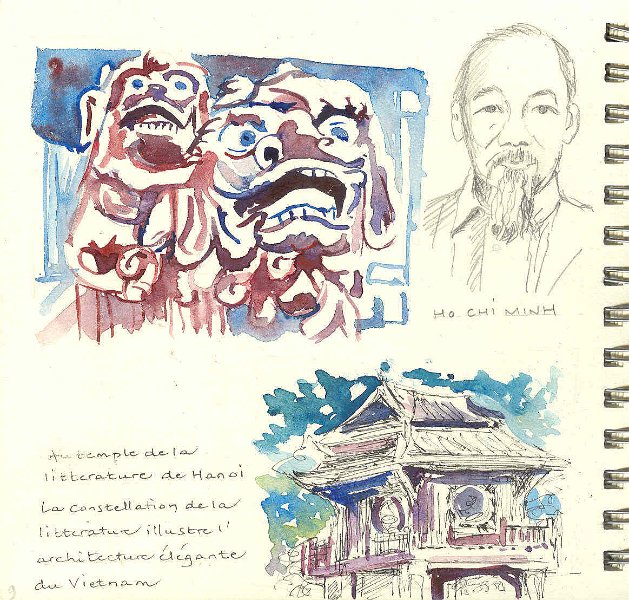 HO CHI MINH
Au temple de la
litterature de Hanoi
La constellation de la
litterature illustre l'
architecture élégante
du Vietnam
9